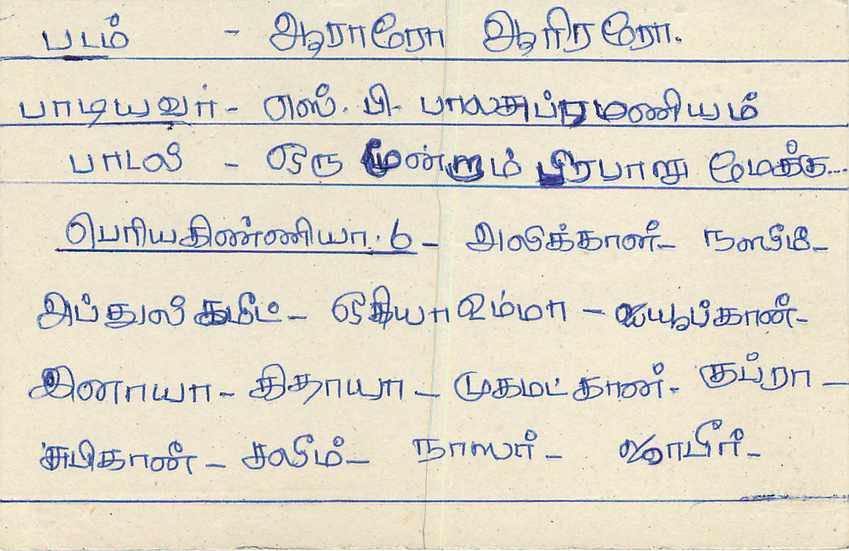 படம் - ஆராரோ ஆரிரரோ.
பாடியவர் - எஸ். பி. பாலசுப்ரமணியம்
பாடல் - ஒரு மூன்றும்
பெரியகிண்ணியா. 6 - அலிக்கான் - நஸீமீ -
அப்துல் கமீட் - ஒதியா உம்மா - ஐயூப்கான் -
இனாயா - கிதாயா - முகமட்கான் - குப்ரா -
சபிகான் - சலீம் - நாஸர் - ஜாபீர் -